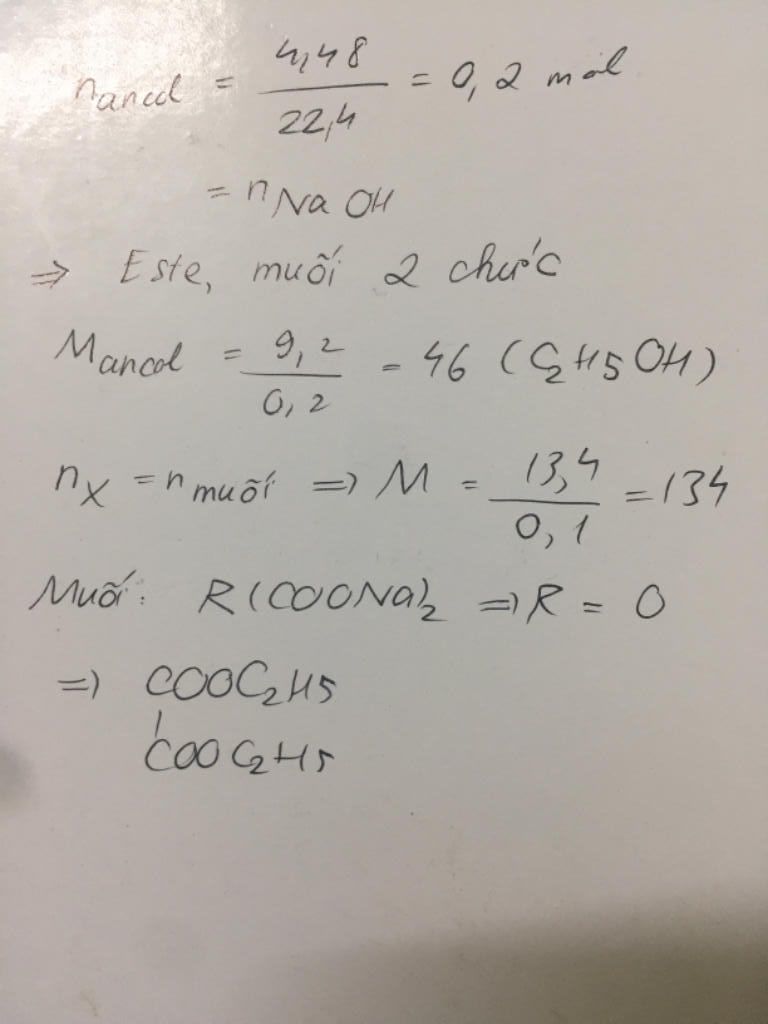 nancol = 4,48 / 22,4 = 0,2 mol
= nNaOH
=> Este, muối 2 chức
Mancol = 9,2 / 0,2 = 46 (C2H5OH)
nX = nmuối => M = 13,4 / 0,1 = 134
Muối: R(COONa)2 => R = 0
=> COOC2H5
|
COOC2H5